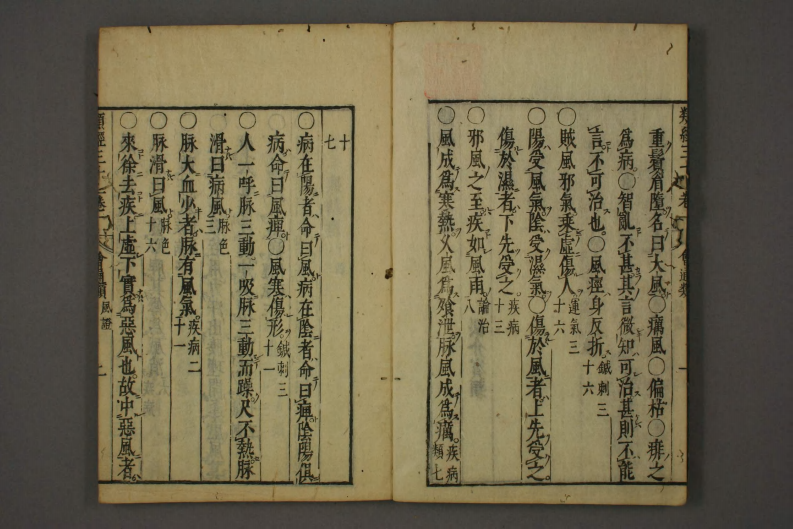 重鬚眉墮名曰大風○癘風○偏枯○痱之
爲病○智亂不甚其言微知可治甚則不能
言不可治也○風痓身反折鍼刺三十六
○賊風邪氣乘虛傷人運氣三十六
○陽受風氣陰受濕氣○傷於風者上先受之
傷於濕者下先受之疾病十三
○邪風之至疾如風雨論治八
○風成爲寒熱久風爲飧泄脉風成爲癘疾病類七
十七
○病在陽者命曰風病在陰者命曰痺陰陽俱
病命曰風痺○風寒傷形鍼刺三十一
人一呼脉三動一吸脉三動而躁尺不熱脉
滑曰病風脉色三
○脉大血少者脉有風氣疾病二十一
○脉滑曰風脉色十六
○來徐去疾上虛下實爲惡風也故中惡風者
類經三十一卷
風證